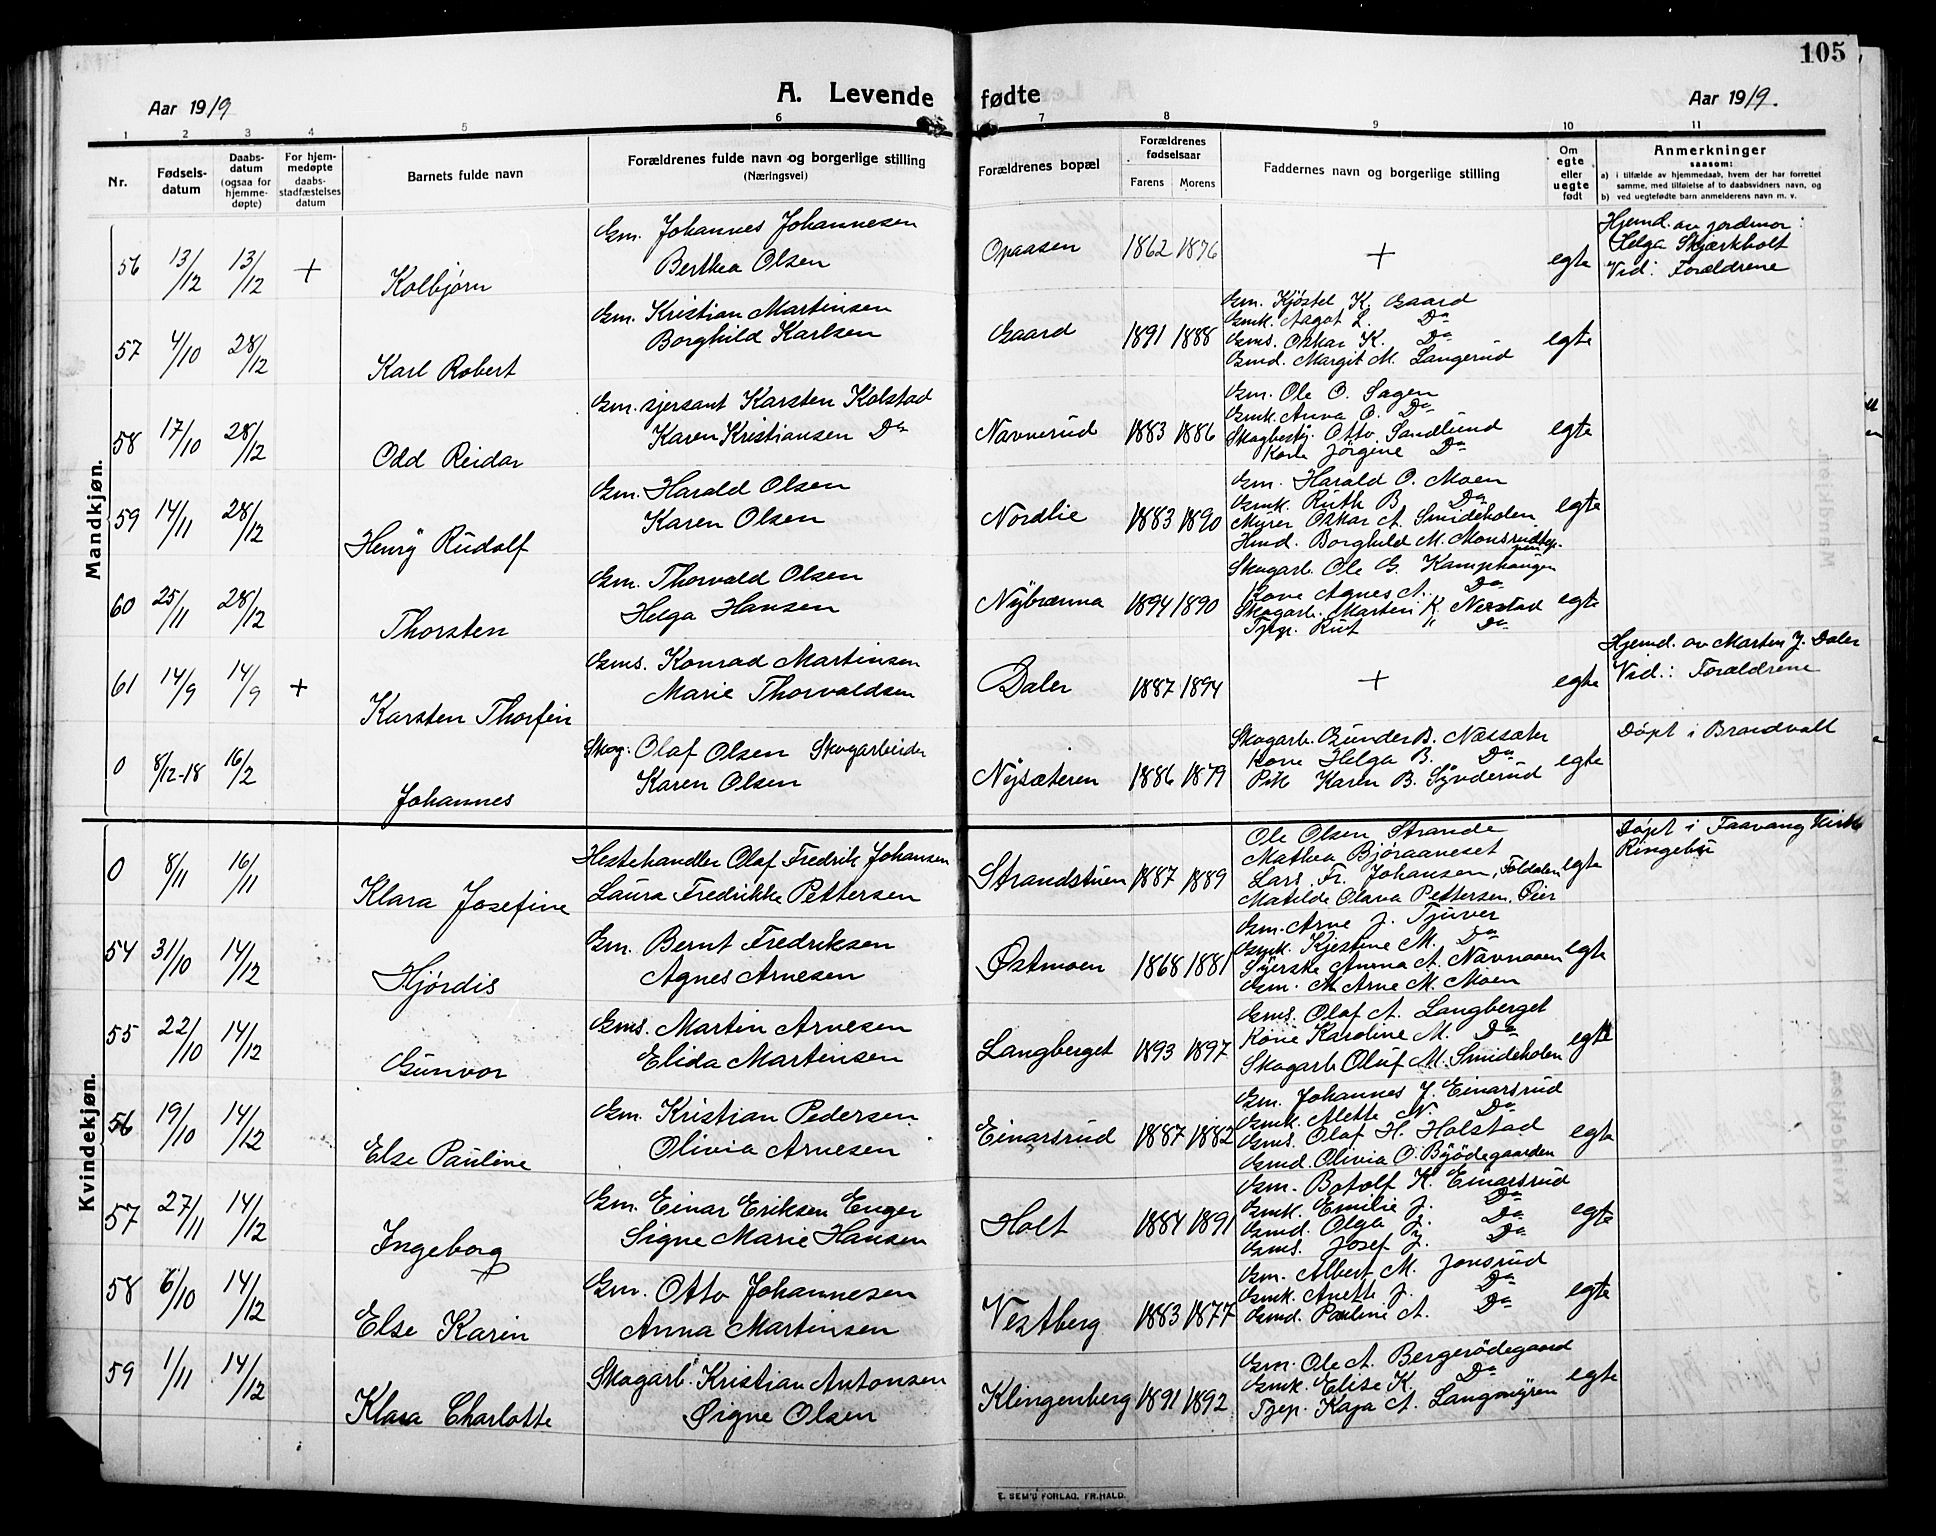 105
Aar 1919
A. Levende fødte
Aar 1919.
1 2 3 4 5 6 7 8 9 10 11
Nr.
Fødsels-
datum
Daabs-
datum
(ogsaa for
hjemme-
døpte)
For hjem-
medøpte
daabs-
stadfæstelses
datum
Barnets fulde navn
Forældrenes fulde navn og borgerlige stilling
(Næringsvei)
Forældrenes bopæl
Forældrenes
fødselsaar
Farens Morens
Faddernes navn og borgerlige stilling
Om
egte
eller
uegte
født
Anmerkninger
saasom:
a) i tilfælde av hjemmedaab, hvem der har forrettet
samme, med tilføielse af to daabsvidners navn, og
b) ved uegtefødte barn anmelderens navn m. v.
Mandkjøn.
56 13/12 13/12 + Kolbjørn
Gm. Johannes Johannesen
Berthea Olsen
Opaasen 1862 1876 + egte
Hjemd. av jordmor:
Helga Skjærkholt
Vid: Forældrene
57 4/10 28/12 Karl Robert
Gm. Kristian Martinsen
Borghild Karlsen
Gaard 1891 1888
Gm. Kjøstel K. Gaard
Gmk. Aagot L. Do
Gms. Oskar K. Do
Gmd. Margit M. Langerud
egte
58 17/10 28/12 Odd Reidar
Gm. sjersant Karsten Kolstad
Karen Kristiansen Do
Navnerud 1883 1886
Gm. Ole O. Sagen
Gmk. Anna O. Do
Skogbesty. Otto Sandlund
Kone Jørgine Do
egte
59 14/11 28/12 Henry Rudolf
Gm. Harald Olsen
Karen Olsen
Nordlie 1883 1890
Gm. Harald O. Moen
Gmk. Ruth B. Do
Myrer Oskar A. Smideholen
Hmd. Borghild M.
egte
60 25/11 28/12 Thorsten
Gm. Thorvald Olsen
Helga Hansen
Nybrænna 1894 1890
Skogarb. Ole G. Kamphaugen
Kone Agnes A. Do
Skogarb. Martin K. Nerstad
Tjep. Rut " Do
egte
61 14/9 14/9 + Karsten Thorfin
Gms. Konrad Martinsen
Marie Thorvaldsen
Daler 1887 1894 + egte
Hjemd. av Marten J. Daler
Vid.: Forældrene
0 8/12-18 16/2 Johannes
Skog. Olaf Olsen Skogarbeider
Karen Olsen
Nysæteren 1886 1879
Skogarb. Gunder B. Næssæter
Kone Helga B. Do
Pik Karen B. Synderud
egte
Døpt i Brandvalt
Kvindekjøn.
0 8/11 16/11 Klara Josefine
Hestehandler Olaf Fredrik Johansen
Laura Fredrikke Pettersen
Strandstuen 1887 1889
Ole Olsen Strande
Mathea Bjøraaneset
Lars Fr. Johansen, Foldalen
Matilde Olava Pettersen, Øier
egte
Døpt i Faavang Kirke
Ringebu
54 31/10 14/12 Hjørdis
Gm. Bernt Fredriksen
Agnes Arnesen
Østmoen 1868 1881
Gm. Arne J. Tjuver
Gmk. Kjestine M. Do
Syerske Anna A. Navnaaen
Gm. M Arne M. Moen
egte
55 22/10 14/12 Gunvor
Gms. Martin Arnesen
Elida Martinsen
Langberget 1893 1897
Gms. Olaf A. Langberget
Kone Karoline M. Do
Skogarb Oluf M. Smideholen
egte
56 19/10 14/12 Else Pauline
Gm. Kristian Pedersen
Olivia Arnesen
Einarsrud 1887 1882
Gm. Johannes J. Einarsrud
Gmk. Alette N. Do
Gms. Olaf H. Holstad
Gmd. Olivia O. Byødegaarden
egte
57 27/11 14/12 Ingeborg
Gm. Einar Eriksen Enger
Signe Marie Hansen
Holt 1884 1891
Gm. Botolf K. Einarsrud
Gmk. Emilie J. Do
Gmd. Olga J. Do
Gms. Josef J. Do
egte
58 6/10 14/12 Else Karin
Gm. Otto Johannesen
Anna Martinsen
Vestberg 1883 1877
Gm. Albert M. Jonsrud
Gmk. Anette J. Do
Gmd. Pauline A. Do
egte
59 1/11 14/12 Klara Charlotte
Skogarb. Kristian Antonsen
Signe Olsen
Klingenberg 1891 1892
Gm. Ole A. Bergerødegaard
Gmk. Elise K. Do
Tjep. Kaja A. Langmyren
egte
E. SEM'S FORLAG, FR.HALD.